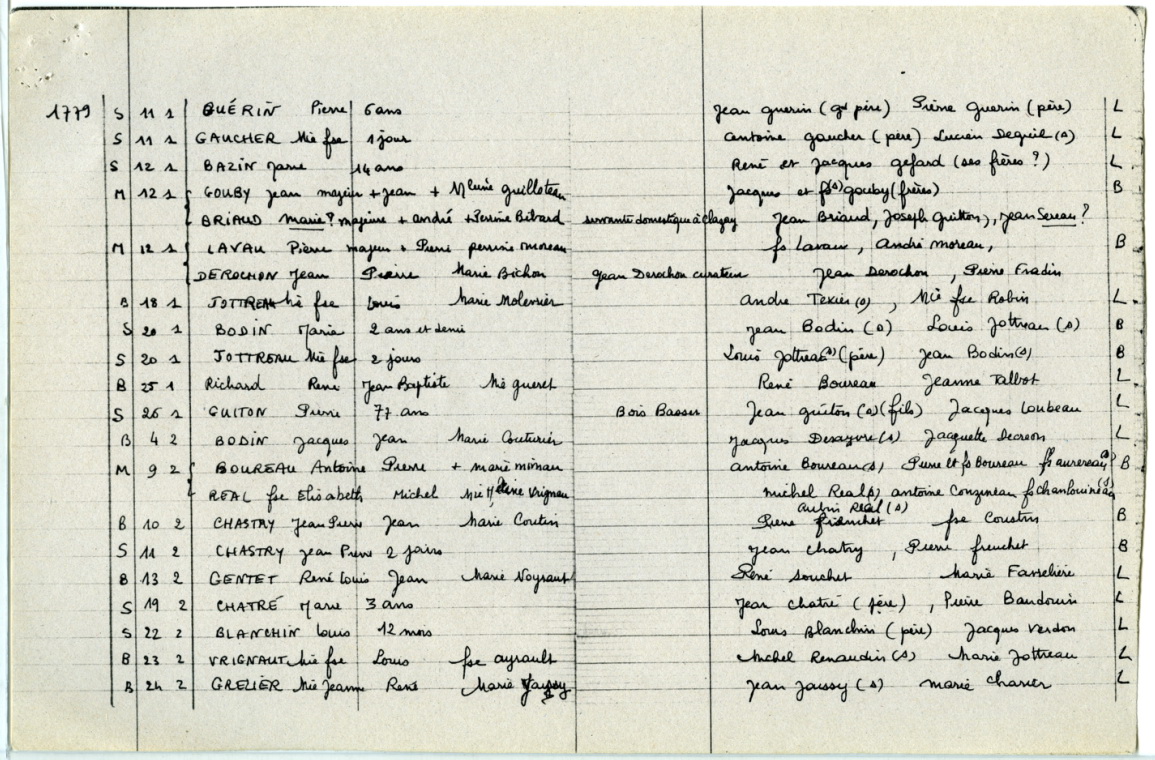 1779 S 11 1 GUÉRIN Pierre 6 ans Jean guerin (gd père) Pierre Guerin (père) L
S 11 1 GAUCHER Mie fse 1 jour antoine gaucher (père) Lucien Deguil (s) L
S 12 1 BAZIN Marie 14 ans René et Jacques gefard (ses frères ?) L
M 12 1 GOUBY Jean majeur + Jean + guilloteau Jacques et fs(s) gouby (frères) B
BRIAUD marie? majeure + andré + Perrine Bibard servante domestique à clazay Jean Briaud, Joseph guitton, Jean Sereau ?
M 12 1 LAVAU Pierre majeur + Pierre perrine moreau fs Lavaux, André moreau, B
DEROCHON Jean Pierre Marie Bichon Jean Derochon curateur Jean Derochon, Pierre Fradin
B 18 1 JOTTREAU Mie fse Louis Marie Molennier Andre Texier (s), Mie fse Robin L
S 20 1 BODIN Marie 2 ans et demi Jean Bodin (s) Louis Jottreau (s) B
S 20 1 JOTTREAU Mie fse 2 jours Louis Jottreau(s) (père) Jean Bodin(s) B
B 25 1 Richard René Jean Baptiste Mie gueret René Boureau Jeanne Talbot L
S 26 1 GUITON Pierre 77 ans Bois Basset Jean guiton (s) (fils) Jacques Loubeau L
B 4 2 BODIN Jacques Jean Marie Couturier Jacques (s) Jacquette Decreon L
M 9 2 BOUREAU Antoine Pierre + marie mimau antoine Boureau(s) Pierre et fs Boureau B
REAL fse Elisabeth Michel Vrignau michel Real(s) antoine
Aubin Réal (s)
B 10 2 CHASTRY Jean Pierre Jean Marie Coutin Pierre frenchet fse Coustin B
S 11 2 CHASTRY Jean Pierre 2 jours Jean chatry, Pierre freuchet B
B 13 2 GENTET René Louis Jean Marie Voyraut René Souchet Marie Fasselière L
S 19 2 CHATRÉ Marie 3 ans Jean chatré (père), Pierre Baudouin L
S 22 2 BLANCHIN Louis 12 mois Louis Blanchin (père) Jacques Verdon L
B 23 2 VRIGNAUT Mie fse Louis fse ayrault Michel Renaudin (s) Marie Jottreau L
B 24 2 GRELIER Mie Jeanne René Marie Jaussy Jean Jaussy (s) marie Charier L